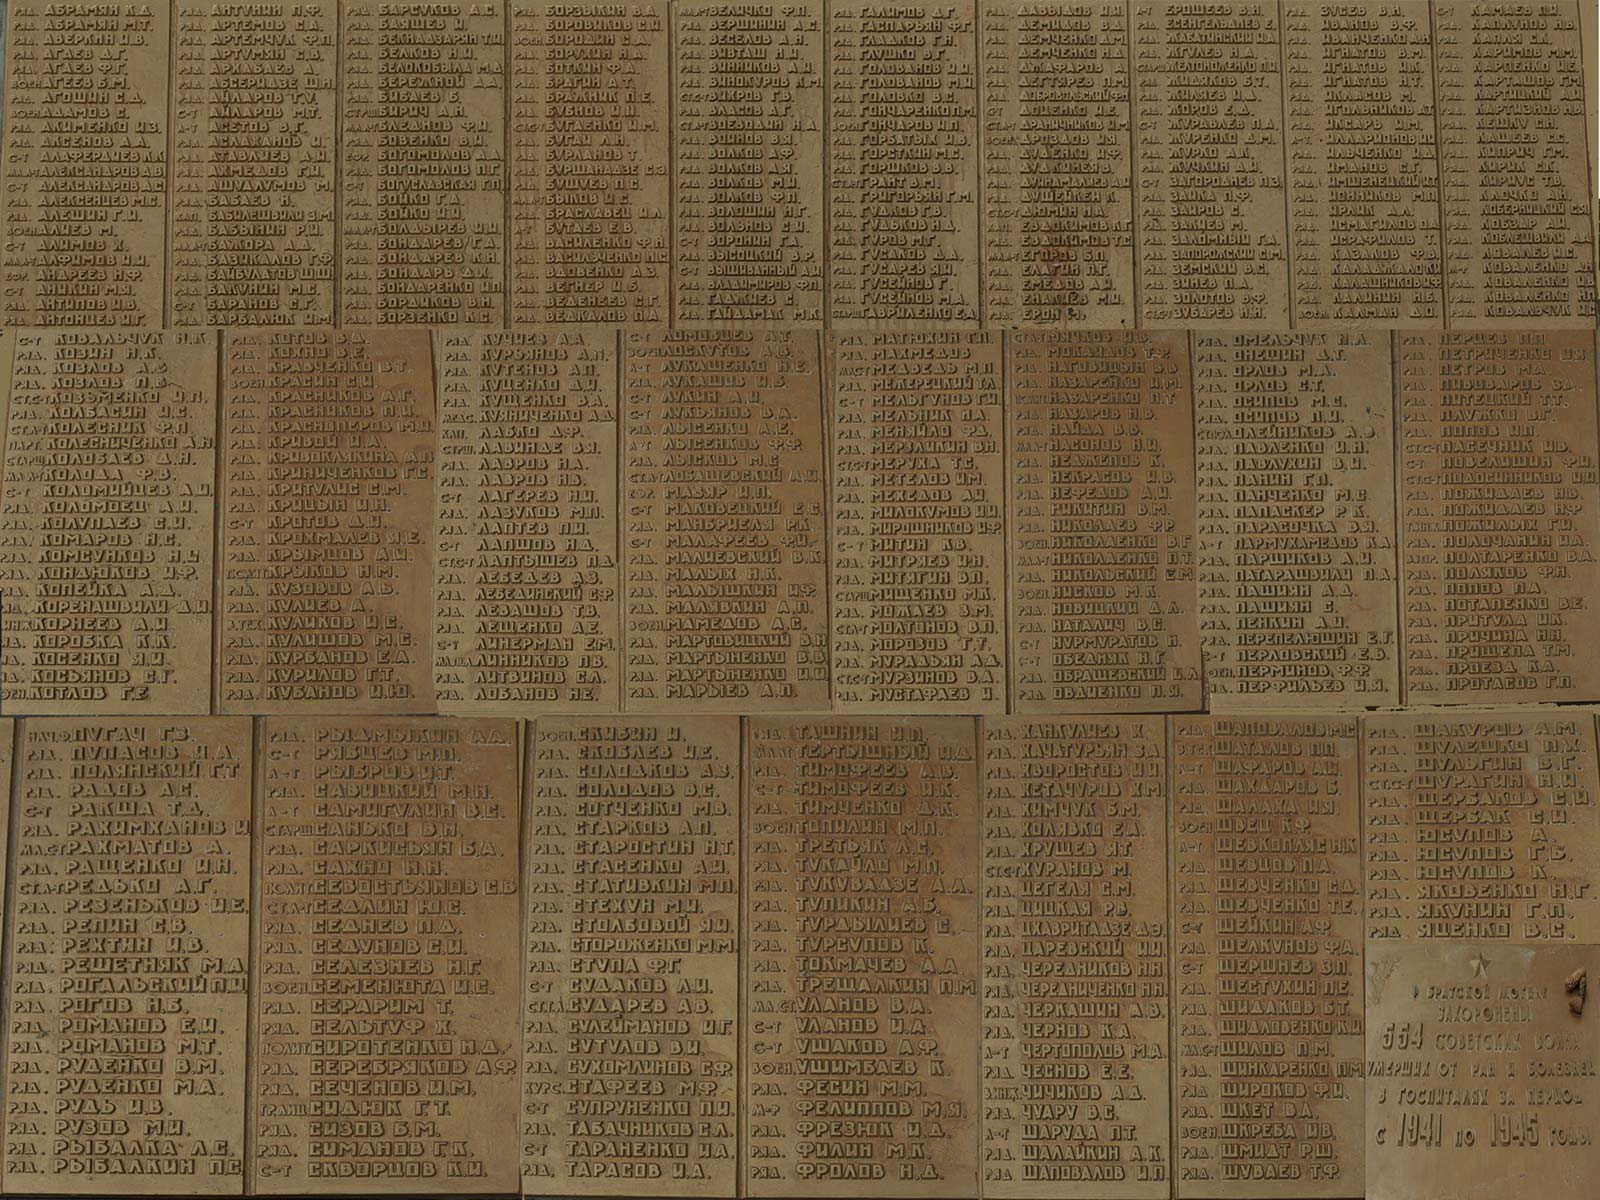 РЯД. АБРАМЯН К.Д.
РЯД. АБРАМЯН М.Т.
РЯД. АВЕРКИН И.В.
РЯД. АГАЕВ Д.Г.
РЯД. АГАЕВ Ф.Г.
ВОЕН. АГЕЕВ Б.М.
РЯД. АГОШИН С.Д.
ВОЕН. АДАМОВ С.
РЯД. АКИМЕНКО И.З.
РЯД. АКСЕНОВ А.А.
С-Т АЛАФЕРДИЕВ К.К.
МЛ.Л-Т АЛЕКСАНДРОВ А.В.
С-Т АЛЕКСАНДРОВ А.С.
РЯД. АЛЕКСЕНЦЕВ М.С.
РЯД. АЛЕШИН Г.И.
ВОЕН. АЛИЕВ М.
С-Т АЛИМОВ Х.
МЛ.Л-Т АЛФИМОВ И.И.
ЕФР. АНДРЕЕВ Н.Ф.
С-Т АНИКИН М.Я.
РЯД. АНТИПОВ И.В.
РЯД. АНТОНЦЕВ И.Г.
РЯД. АНТУНИН П.Ф.
РЯД. АРТЕМОВ С.А.
РЯД. АРТЕМЧУК Ф.П.
РЯД. АРТУМЯН С.В.
РЯД. АРХАБАЕВ А.
РЯД. АБСЕРИДЗЕ Ш.Н.
РЯД. АЙЛАРОВ Г.У.
С-Т АЙЛАРОВ М.Т.
Л-Т АСЕТОВ В.Г.
РЯД. АСЛАХАНОВ И.
РЯД. АТАВЛИЕВ А.И.
РЯД. АХМЕДОВ Г.И.
РЯД. АШУАЛУМОВ М.
РЯД. БАБАЕВ Н.
КАП. БАБИЛЕШВИЛИ З.М.
РЯД. БАБЫНИН Р.И.
МЛ.Л-Т БАЖОРА А.Д.
РЯД. БАЗИКАЛОВ Г.Ф.
РЯД. БАЙБУЛАТОВ Ш.Ш.
РЯД. БАКУНИН М.С.
С-Т БАРАНОВ С.Г.
РЯД. БАРБАЛЮК И.М.
РЯД. БАРСУКОВ А.С.
РЯД. БАЯЩЕВ И.
РЯД. БЕКНАДЗАРЯН Т.И.
РЯД. БЕЛКОВ Н.И.
РЯД. БЕЛОКОБЫЛА М.Д.
РЯД. БЕРЕЖНОЙ А.А.
РЯД. БИБАЕВ Б.
СТРШ. БИРИЧ А.Н.
МЛ.Л-Т БЛЕДНОВ Ф.И.
РЯД. БОВЕНКО В.И.
ЕФР. БОГОМОЛОВ А.А.
РЯД. БОГОМОЛОВ П.Г.
С-Т БОГУСЛАВСКАЯ Г.П.
РЯД. БОЙКО Г.А.
РЯД. БОЙКО И.И.
МЛ.Л-Т БОЛДЫРЕВ И.И.
РЯД. БОНДАРЕВ Г.А.
РЯД. БОНДАРЕВ К.Н.
РЯД. БОНДАРЬ Д.Х.
РЯД. БОНДАРЕНКО И.П.
РЯД. БОРДИКОВ В.Н.
РЯД. БОРЗЕНКО К.С.
РЯД. БОРЗЫКИН В.А.
РЯД. БОРОВИКОВ С.И.
ВОЕН. БОРОДИН С.А.
РЯД. БОРУХИН Н.А.
РЯД. БОТКИН Ф.А.
РЯД. БРАГИН А.Т.
РЯД. БРАЖНИК П.Е.
РЯД. БУБНОВ И.И.
СТ.С-Т БУГАЕНКО И.М.
РЯД. БУГАЙ Л.Н.
РЯД. БУРЛАНОВ Т.
РЯД. БУРШАНАДЗЕ С.З.
РЯД. БУШУЕВ П.С.
МЛ.Л-Т БЫКОВ И.С.
РЯД. БРАСЛАВЕЦ И.Л.
Л-Т БУТАЕВ Е.В.
РЯД. ВАСИЛЕНКО Ф.Н.
РЯД. ВАСИЛЬЧЕНКО П.С.
РЯД. ВДОВЕНКО А.З.
РЯД. ВЕГНЕР И.Б.
РЯД. ВЕДЕНЕЕВ С.Г.
РЯД. ВЕДКАЛОВ П.А.
МЛ.Л-Т ВЕЛИЧКО Ф.П.
РЯД. ВЕРШИНИН А.С.
РЯД. ВЕСЕЛОВ А.Н.
РЯД. ВИВТАШ Н.Г.
РЯД. ВИННИКОВ А.И.
РЯД. ВИНОКУРОВ К.М.
СТ.С-Т ВИХРОВ Г.В.
РЯД. ВЛАСОВ А.Г.
СТ.Л-Т ВОЕВОДИН Н.А.
РЯД. ВОИНОВ В.Я.
РЯД. ВОЛКОВ А.Ф.
РЯД. ВОЛКОВ А.Я.
РЯД. ВОЛКОВ М.И.
РЯД. ВОЛКОВ Ф.П.
РЯД. ВОЛОШИН Н.Г.
РЯД. ВОЛЬНОВ С.И.
С-Т ВОРОНИН Г.А.
РЯД. ВЫСОЦКИЙ В.Р.
С-Т ВЫШИВАННЫЙ А.И.
РЯД. ВЛАДИМИРОВ Ф.П.
РЯД. ГАДЖИЕВ С.
РЯД. ГАЙДАМАК М.К.
РЯД. ГАЛИМОВ Д.Г.
РЯД. ГАСПАРЬЯН Ф.Г.
РЯД. ГЛАДКОВ Г.Н.
РЯД. ГЛУШКО В.Г.
РЯД. ГОЛОВАНОВ И.И.
РЯД. ГОЛОВАНОВ Н.М.
РЯД. ГОЛОВКО В.С.
РЯД. ГОНЧАРЕНКО П.М.
ВОЕН. ГОНЧАРОВ И.П.
РЯД. ГОРБАТЫХ И.В.
РЯД. ГОРСТКИН М.С.
РЯД. ГОРШКОВ В.В.
СТ.Л-Т ГРАНТ В.М.
РЯД. ГРИГОРЬЯН Г.М.
РЯД. ГУДКОВ Г.В.
РЯД. ГУДЬКОВ Н.Д.
РЯД. ГУРОВ М.Г.
РЯД. ГУСАКОВ Д.А.
РЯД. ГУСАРЕВ Я.И.
РЯД. ГУСЕЙНОВ Г.
РЯД. ГУСЕЙНОВ М.А.
СТАРШ. ГАВРИЛЕНКО Е.Д.
РЯД. ДАВЫДОВ И.И.
РЯД. ДЕМИДОВ В.А.
РЯД. ДЕМЧЕНКО Д.М.
РЯД. ДЕМЧЕНКО Н.Д.
РЯД. ДЖАФАРОВ А.
РЯД. ДЕГТУРЕВ П.М.
РЯД. ДОБРОВОЛЬСКИЙ Ф.Н.
С-Т ДОЦЕНКО И.Е.
СТ.Л-Т ДРАНИЧНИКОВ И.М.
ВОЕН. ДРОЗДОВ И.Я.
РЯД. ДУДЕНКО И.Ф.
РЯД. ДУДКИНЕЯ В.
РЯД. ДУЙНАМАЛИЕВ А.И.
РЯД. ДУШЕЙКЕН К.
СТ.С-Т ДЮМИН Н.А.
КАП. ЕВДОКИМОВ К.Г.
РЯД. ЕВДОКИМОВ Т.С.
МЛ.Л-Т ЕГОРОВ Б.П.
РЯД. ЕЛАГИН П.Г.
РЯД. ЕМЕДОВ А.И.
РЯД. ЕНАКИЕВ М.И.
РЯД. ЕРОН М.
Л-Т ЕРОШЕЕВ В.Н.
РЯД. ЕСЕНГЕЛЬДИЕВ Е.
РЯД. ЖАБАТИНСКИЙ И.А.
РЯД. ЖГУЛЕВ Н.А.
СТАРШ. ЖЕЛТОНОЖЕНКО П.И.
РЯД. ЖИДЯКОВ Б.Т.
РЯД. ЖИЛЯЕВ И.Д.
РЯД. ЖОРОВ Е.Д.
С-Т ЖУРАВЛЕВ П.А.
РЯД. ЖУРЕНКО Д.М.
РЯД. ЖУРКО А.К.
РЯД. ЖУЧКИН А.И.
С-Т ЗАГОРОДНЕВ П.З.
РЯД. ЗАИКА П.Ф.
РЯД. ЗАИРОВ С.
РЯД. ЗАКИЕВ М.
РЯД. ЗАЛОМНЫЙ Г.А.
РЯД. ЗАПОРОЖСКИЙ С.М.
РЯД. ЗЕМСКИЙ В.С.
РЯД. ЗИНЕВ П.А.
РЯД. ЗОЛОТОВ В.Ф.
СТ.С-Т ЗУБАРЕВ Н.Н.
РЯД. ЗУСЕВ В.Н.
РЯД. ИВАНОВ В.Ф.
РЯД. ИВАНЧЕНКО А.Н.
РЯД. ИГНАТОВ В.М.
РЯД. ИГНАТОВ И.К.
РЯД. ИГНАТОВ Н.Г.
РЯД. ИКЛАМОВ М.
РЯД. ИГОЛЬНИКОВ А.Т.
РЯД. ИКСАРЬ И.М.
Л-Т. ИЛЛАРИОНОВ И.И.
РЯД. ИЛЬВЧЕНКО И.Д.
РЯД. ИМАНОВ С.Г.
РЯД. ИМШЕНЕЦКИЙ И.Т.
РЯД. ИОННИКОВ М.П.
РЯД. ИРЛИК А.Л.
РЯД. ИСМАГИЛОВ О.А.
РЯД. ИСРАФИЛОВ Т.
РЯД. КАЗАКОВ Ф.В.
РЯД. КАЛАДЖАЛО К.И.
РЯД. КАЛАШНИКОВ И.Ф.
РЯД. КАЛИНИН Н.Б.
ВОЕН. КАЛМАН Д.О.
С-Т КАМАЕВ П.И.
РЯД. КАПЛУНОВ Н.В.
РЯД. КАПЛЯ С.К.
РЯД. КАРИМОВ М.М.
РЯД. КАРПЕНКО И.Е.
РЯД. КАРТАШОВ Г.М.
РЯД. КАРТИЦКИЙ А.И.
РЯД. КАРТИЗНОВ Н.В.
РЯД. КЕШКУ С.Н.
РЯД. КАЩЕЕВ С.С.
РЯД. КИПРИЧ Г.М.
РЯД. КИРИК С.К.
РЯД. КИРИУС Т.В.
РЯД. КЛОЧКО А.Н.
РЯД. КОБЕРНИЦКИЙ С.Я.
РЯД. КОБЗАР А.И.
РЯД. КОБЛЕШВИЛИ Д.А.
РЯД. КОВАЛЕВ И.С.
М-Р КОВАЛЕНКО А.Н.
РЯД. КОВАЛЕНКО И.И.
РЯД. КОВАЛЕНКО Н.П.
РЯД. КОВАЛЬЧУК И.С.
С-Т КОВАЛЬЧУК Н.К.
РЯД. КОЗИН Н.К.
РЯД. КОЗЛОВ А.В.
РЯД. КОЗЛОВ П.В.
СТ.С-Т КОЗЬМЕНКО И.П.
РЯД. КОЛБАСИН И.С.
СТ.Л-Т КОЛЕСНИК Ф.П.
ПАРТ. КОЛЕСНИЧЕНКО А.Н.
СТАРШ. КОЛОБАЕВ Д.Н.
МЛ.Л-Т КОЛОДА Ф.В.
С-Т КОЛОМИЙЦЕВ А.И.
РЯД. КОЛОМОЕЦ А.И.
РЯД. КОЛУПАЕВ С.И.
РЯД. КОМАРОВ Н.С.
РЯД. КОМСУНКОВ Н.И.
РЯД. КОНДЮКОВ И.Ф.
РЯД. КОПЕЙКА А.Д.
РЯД. КОРЕНАШВИЛИ Д.И.
КОРНЕЕВ А.И.
РЯД. КОРОБКА К.К.
РЯД. КОСЕНКО Я.И.
РЯД. КОСЬЯНОВ С.Г.
ВОЕН. КОТЛОВ Г.Е.
РЯД. КОТОВ В.Д.
РЯД. КОХНО В.Е.
РЯД. КРАВЧЕНКО В.Т.
ВОЕН. КРАСИН С.И.
РЯД. КРАСНИКОВ А.Г.
РЯД. КРАСНИКОВ П.И.
РЯД. КРАСНОПЕРОВ М.И.
РЯД. КРИВОЙ И.А.
РЯД. КРИВОКЛЯКИНА А.П.
РЯД. КРИНИЧЕНКОВ Г.С.
РЯД. КРИТУЛИС С.М.
РЯД. КРИЦЫН И.Н.
С-Т КРОТОВ Д.И.
РЯД. КРОХМАЛЕВ Я.Е.
РЯД. КРЫМЦОВ А.И.
ПОЛИТ. КРЫКОВ Н.М.
РЯД. КУЗОВОВ А.Б.
РЯД. КУЛИЕВ А.
В.ТЕХ. КУЛИКОВ И.С.
РЯД. КУЛИШОВ М.С.
РЯД. КУРБАНОВ Е.А.
РЯД. КУРИЛОВ Г.Т.
РЯД. КУБАНОВ И.Ю.
РЯД. КУЧИЕВ А.А.
РЯД. КУРЬЯНОВ А.И.
РЯД. КУТЕНОВ А.П.
РЯД. КУЦЕНКО Д.И.
РЯД. КУЩЕНКО В.А.
МЕДС. КУЗНИЧЕНКО А.Д.
КАП. ЛАБКО Д.Ф.
СТРШ. ЛАВИНДЕ В.Я.
РЯД. ЛАВРОВ Н.А.
РЯД. ЛАВРОВ Н.В.
С-Т ЛАГЕРЕВ Н.И.
РЯД. ЛАЗУКОВ М.П.
РЯД. ЛАПТЕВ П.И.
С-Т ЛАПШОВ Н.Д.
СТ.С-Т ЛАПТЫШЕВ П.Д.
РЯД. ЛЕБЕДЕВ А.З.
РЯД. ЛЕБЕДИНСКИЙ С.Ф.
РЯД. ЛЕВАШОВ Т.В.
РЯД. ЛЕЩЕНКО А.Е.
С-Т ЛИНЕРМАН Е.М.
ЛИННИКОВ П.В.
РЯД. ЛИТВИНОВ С.Л.
РЯД. ЛОБАНОВ Н.Е.
С-Т ЛОМОВЦЕВ А.Т.
ВОЕН. ЛОСКУТОВ А.В.
Л-Т ЛУКАШЕНКО Н.Е.
РЯД. ЛУКАШОВ И.Б.
С-Т ЛУКИН А.И.
С-Т ЛУКЬЯНОВ В.Д.
РЯД. ЛЫСЕНКО А.Е.
Л-Т ЛЫСЕНКОВ Ф.Ф.
РЯД. ЛЫСКОВ М.С.
СТ.Л-Т ЛОБАШЕВСКИЙ А.И.
ЕФР. МАВЬЯР И.П.
С-Т МАКОВЕЦКИЙ Е.С.
РЯД. МАНБРИЕЛЯ Р.К.
С-Т МАЛАФЕЕВ Ф.И.
РЯД. МАЛИЕВСКИЙ В.К.
РЯД. МАЛЫХ Н.К.
РЯД. МАЛЫШКИН И.Ф.
РЯД. МАЛЯВКИН А.П.
ВОЕН. МАМЕДОВ А.С.
РЯД. МАРТОВИЦКИЙ В.Н.
РЯД. МАРТЫНЕНКО В.В.
РЯД. МАРТЫНЕНКО И.И.
РЯД. МАРЫЕВ А.П.
РЯД. МАТЮХИН Т.П.
РЯД. МАХМЕДОВ
МЛ.С-Т МЕДВЕДЬ М.П.
РЯД. МЕЖЕРЕЦКИЙ Г.Л.
С-Т МЕЛЬГУНОВ Г.И.
РЯД. МЕЛЬНИК Н.А.
РЯД. МЕНЯЙЛО Ф.Д.
РЯД. МЕРЗЛИКИН В.Н.
СТ.С-Т МЕРУХА Т.С.
РЯД. МЕТЕЛОВ И.М.
РЯД. МЕХЕДОВ А.И.
РЯД. МИЛОКУМОВ И.И.
РЯД. МИРОШНИКОВ И.Ф.
С-Т МИТИН К.В.
РЯД. МИТРЯЕВ И.Н.
РЯД. МИТЯГИН В.П.
СТАРШ. МИЩЕНКО М.К.
РЯД. МОЖАЕВ З.М.
СТ.Л-Т МОЛТОНОВ В.П.
РЯД. МОРОЗОВ Г.Т.
РЯД. МУРАДЬЯН А.Д.
СТ.С-Т МУРЗИНОВ В.А.
РЯД. МУСТАФАЕВ И.
СТ.Л-Т МЯЧКОВ И.В.
РЯД. МОКАИДОВ Т.Ф.
РЯД. НАГОВИЦЫН В.В.
РЯД. НАЗАРЕНКО И.М.
ПОЛИТ. НАЗАРЕНКО П.Т.
РЯД. НАЗАРОВ Н.В.
РЯД. НАЙДА В.В.
МЛ.Л-Т НАСОНОВ Н.И.
РЯД. НЕДЖЕПОВ К.
РЯД. НЕКРАСОВ И.В.
РЯД. НЕФЕДОВ А.И.
РЯД. НИКИТИН В.М.
РЯД. НИКОЛАЕВ Ф.Р.
ВОЕН. НИКОЛАЕНКО В.Г.
МЛ.Л-Т НИКОЛАЕНКО П.Т.
РЯД. НИКОЛЬСКИЙ Е.М.
ВОЕН. НИСКОВ М.К.
РЯД. НОВИЦКИЙ Д.Л.
РЯД. НАТАЛИЧ В.С.
С-Т НУРМУРАТОВ Н.
С-Т ОБЕДНЯК Н.Г.
РЯД. ОБРАЩЕВСКИЙ Е.А.
РЯД. ОВДИЕНКО П.Я.
РЯД. ОМЕЛЬЧУК Н.А.
РЯД. ОНЕШИН Д.Т.
РЯД. ОРЛОВ М.А.
РЯД. ОРЛОВ С.Т.
РЯД. ОСИПОВ М.С.
РЯД. ОСИПОВ П.И.
ОЛЕЙНИКОВ А.Э.
РЯД. ПАВЛЕНКО И.Н.
РЯД. ПАВЛУХИН В.И.
РЯД. ПАНИН Г.П.
РЯД. ПАНЧЕНКО М.С.
РЯД. ПАПАСКЕР Р.К.
РЯД. ПАРАСОЧКА В.Я.
Л-Т ПАРМУХАМЕДОВ К.А.
РЯД. ПАРШИКОВ А.И.
РЯД. ПАТАРАШВИЛИ П.А.
РЯД. ПАШИЯН А.Д.
РЯД. ПАШИЯН С.
РЯД. ПЕНКИН А.И.
РЯД. ПЕРЕПЕЛЮШИН Е.Г.
С-Т ПЕРЛОВСКИЙ Е.В.
ВОЕН. ПЕРМИНОВ Ф.Ф.
РЯД. ПЕРФИЛЬЕВ И.Я.
РЯД. ПЕРЦЕВ П.П.
РЯД. ПЕТРИЧЕНКО И.Я.
РЯД. ПЕТРОВ М.А.
РЯД. ПИВОВАРОВ З.А.
РЯД. ПИТЕЦКИЙ Т.Т.
РЯД. ПЛУЖКО В.Г.
РЯД. ПОПОВ И.П.
СТ.С-Т ПАСЕЧНИК И.В.
С-Т ПОВЕЛИШИН Ф.И.
СТ.С-Т ПОДОСИННИКОВ И.И.
РЯД. ПОЖИДАЕВ Н.В.
РЯД. ПОЖИДАЕВ Н.Ф.
ПОЖИЛЫХ Г.И.
РЯД. ПОЛОЧАНИН И.А.
ПОЛТАРЕНКО В.А.
РЯД. ПОЛЯКОВ Ф.Н.
РЯД. ПОПОВ П.А.
РЯД. ПОТАПЕНКО В.Е.
РЯД. ПРИТУЛА И.К.
РЯД. ПРИЧИНА Н.Н.
РЯД. ПРИЩЕПА Т.М.
РЯД. ПРОЕЗД К.А.
РЯД. ПРОТАСОВ Г.П.
НАЧ.Ф. ПУГАЧ Г.З.
РЯД. ПУПАСОВ И.А.
РЯД. ПОЛЯНСКИЙ Г.Т.
РЯД. РАДОВ А.С.
С-Т РАКША Т.Д.
РЯД. РАХИМХАНОВ И.
МЛ.С-Т РАХМАТОВ А.
РЯД. РАЩЕНКО И.Н.
СТ.Л-Т РЕДЬКО А.Г.
РЯД. РЕЗЕНЬКОВ И.Е.
РЯД. РЕПИН С.В.
РЯД. РЕХТИН И.В.
РЯД. РЕШЕТНЯК М.А.
РЯД. РОГАЛЬСКИЙ П.И.
РЯД. РОГОВ Н.Б.
РЯД. РОМАНОВ Е.И.
РЯД. РОМАНОВ М.Т.
РЯД. РУДЕНКО В.М.
РЯД. РУДЕНКО М.А.
РЯД. РУДЬ И.В.
РЯД. РУЗОВ М.И.
РЯД. РЫБАЛКА Л.С.
РЯД. РЫБАЛКИН П.С.
РЯД. РЫДМЫКИН А.Д.
С-Т РЯБЦЕВ М.П.
Л-Т РЫБРОВ И.Т.
РЯД. САВИЦКИЙ М.Н.
Л-Т САМИГУЛИН В.С.
СТАРШ. САНЬКО В.Н.
РЯД. САРКИСЬЯН Б.А.
РЯД. САХНО Н.Н.
ПОЛИТ. СЕВОСТЬЯНОВ С.В.
СТ.Л-Т СЕДЛИН Ю.С.
РЯД. СЕДНЕВ П.Д.
РЯД. СЕДУНОВ С.И.
РЯД. СЕЛЕЗНЕВ Н.Г.
ВОЕН. СЕМЕНЮТА И.С.
РЯД. СЕРАРИМ Т.
РЯД. СЕЛЬТУФ Х.
ПОЛИТ. СИРОТЕНКО Н.Д.
РЯД. СЕРЕБРЯКОВ А.Ф.
РЯД. СЕЧЕНОВ И.М.
ГРАЖД. СИДЮК Г.Т.
РЯД. СИЗОВ Б.М.
РЯД. СИМАНОВ Г.К.
С-Т СКВОРЦОВ К.И.
ВОЕН. СКИБИН И.
РЯД. СКОБЛЕВ И.Е.
РЯД. СОЛОДКОВ А.З.
РЯД. СОЛОДОВ В.С.
РЯД. СОТЧЕНКО М.В.
РЯД. СТАРКОВ А.П.
РЯД. СТАРОСТИН Н.Т.
РЯД. СТАСЕНКО А.И.
РЯД. СТАТИВКИН М.П.
РЯД. СТЕХУН М.И.
РЯД. СТОЛБОВОЙ Я.И.
РЯД. СТОРОЖЕНКО М.М.
РЯД. СТУПА Ф.Г.
С-Т СУДАКОВ Л.И.
СТ.Л-Т СУДАРЕВ А.В.
РЯД. СУЛЕЙМАНОВ И.Г.
РЯД. СУТУЛОВ В.И.
РЯД. СУХОМЛИНОВ С.Ф.
КУРС. СТАФЕЕВ М.Ф.
С-Т СУПРУНЕНКО П.И.
РЯД. ТАБАЧНИКОВ С.Л.
С-Т ТАРАНЕНКО И.А.
РЯД. ТАРАСОВ И.А.
РЯД. ТАШНИН И.П.
МЛ.Л-Т ТЕРТЫШНЫЙ И.Д.
РЯД. ТИМОФЕЕВ А.В.
С-Т ТИМОФЕЕВ И.К.
РЯД. ТИМЧЕНКО Д.К.
ВОЕН. ТОПИЛИН М.П.
РЯД. ТРЕТЬЯК Л.С.
РЯД. ТУКАЙЛО М.П.
РЯД. ТУКУВАДЗЕ А.А.
РЯД. ТУПИКИН А.Б.
РЯД. ТУРДЫЛИЕВ С.
РЯД. ТУРСУПОВ К.
РЯД. ТОКМАЧЕВ А.А.
РЯД. ТРЕЩАЛКИН П.М.
МЛ.С-Т УЛАНОВ В.А.
С-Т УЛАНОВ И.А.
С-Т УШАКОВ А.Ф.
ВОЕН. УШИМБАЕВ К.
РЯД. ФЕСИН М.М.
М-Р ФЕЛИППОВ М.Я.
РЯД. ФРЕЗЮК И.Д.
РЯД. ФИЛИН М.К.
РЯД. ФРОЛОВ Н.Д.
РЯД. ХАНКУЛИЕВ Х.
РЯД. ХАЧАТУРЬЯН З.А.
РЯД. ХВОРОСТОВ И.И.
РЯД. ХЕТАЧУРОВ Х.М.
РЯД. ХИМЧУК Б.М.
РЯД. ХОЛЯВКО Е.Д.
РЯД. ХРУЩЕВ Я.Т.
СТ.С-Т ХУРАНОВ М.
РЯД. ЦЕГЕЛЯ С.М.
РЯД. ЦИЦКАЯ Р.В.
РЯД. ЦХАВРИТАДЗЕ Д.Э.
РЯД. ЦАРЕВСКИЙ И.И.
РЯД. ЧЕРЕДНИКОВ Н.Н.
РЯД. ЧЕРЕДНИЧЕНКО Н.Н.
РЯД. ЧЕРКАШИН А.И.
РЯД. ЧЕРНОВ К.А.
Л-Т ЧЕРТОПОЛОВ М.А.
РЯД. ЧЕСНОВ Е.Е.
В.ИНЖ. ЧИЧИКОВ А.Д.
РЯД. ЧУАРУ В.С.
Л-Т ШАРУДА П.Т.
РЯД. ШАЛАЙКИН А.К.
РЯД. ШАПОВАЛОВ И.П.
РЯД. ШАПОВАЛОВ М.С.
В.ТЕХ. ШАТАЛОВ П.П.
Л-Т ШАФАРОВ А.И.
РЯД. ШАХДАРОВ Б.
РЯД. ШАЛАХА И.Я.
ВОЕН. ШВЕЦ К.Ф.
Л-Т ШЕВКОПЛЯС Н.К.
РЯД. ШЕВЦОВ П.А.
РЯД. ШЕВЧЕНКО С.Д.
РЯД. ШЕВЧЕНКО Т.Е.
С-Т ШЕЙКИН А.Ф.
РЯД. ШЕЛКУНОВ Ф.А.
С-Т ШЕРШНЕВ З.П.
РЯД. ШЕСТУХИН П.Е.
РЯД. ШИДАКОВ Б.Т.
РЯД. ШИДЛОВЕНКО К.И.
МЛ.С-Т ШИЛОВ П.М.
РЯД. ШИНКАРЕНКО П.М.
РЯД. ШИРОКОВ Ф.И.
РЯД. ШКЕТ В.А.
ВОЕН. ШКРЕБА И.В.
РЯД. ШМИДТ Р.Ш.
РЯД. ШУВАЕВ Т.Ф.
РЯД. ШАКУРОВ А.М.
РЯД. ШУЛЕШКО П.Х.
РЯД. ШУЛЬГИН В.Г.
СТ.С-Т ШУРАГИН Н.И.
РЯД. ЩЕРБАКОВ С.И.
РЯД. ЩЕРБАК С.И.
РЯД. ЮСУПОВ А.
РЯД. ЮСУПОВ Г.Б.
РЯД. ЮСУПОВ К.
РЯД. ЯКОВЕНКО Н.Г.
РЯД. ЯКУНИН Г.П.
РЯД. ЯЦЕНКО В.С.
В БРАТСКОЙ МОГИЛЕ
ЗАХОРОНЕНЫ
554 СОВЕТСКИХ ВОИНА
УМЕРШИХ ОТ РАН И БОЛЕЗНЕЙ
В ГОСПИТАЛЯХ ЗА ПЕРИОД
С 1941 ПО 1945 ГОДЫ